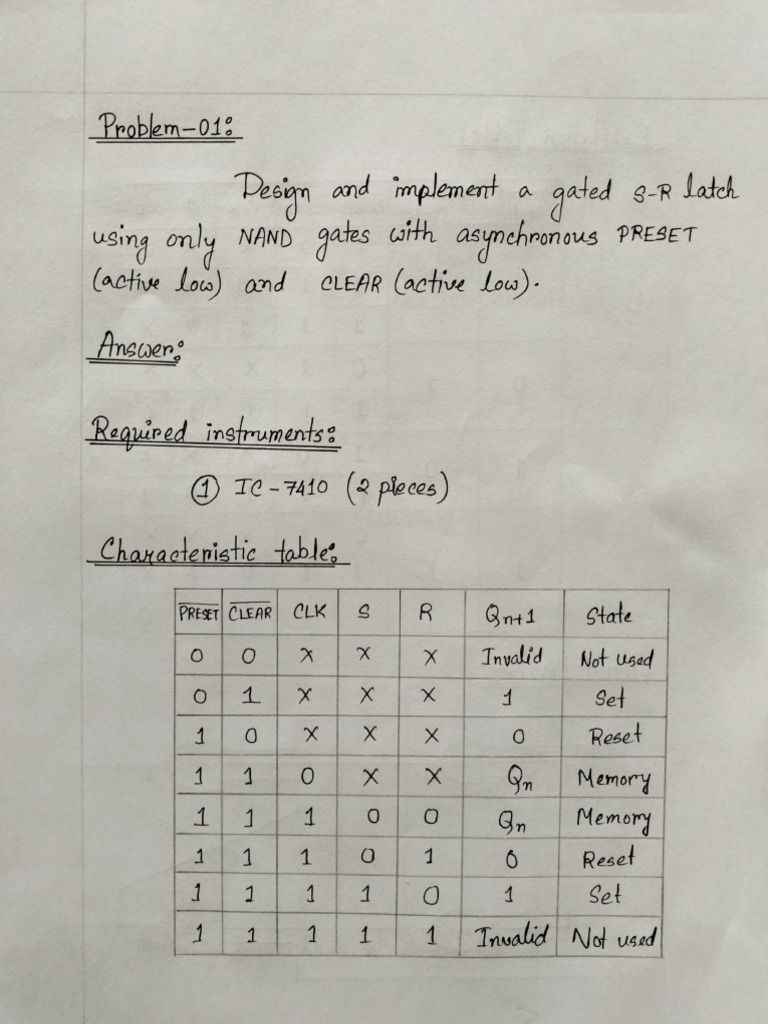 Problem-01:
Design and implement a gated S-R latch
using only NAND gates with asynchronous PRESET
(active low) and CLEAR (active low).
Answer:
Required instruments:
① IC-7410 (2 pieces)
Characteristic table:
P̅R̅E̅S̅E̅T̅ C̅L̅E̅A̅R̅ CLK S R Qn+1 State
0 0 X X X Invalid Not used
0 1 X X X 1 Set
1 0 X X X 0 Reset
1 1 0 X X Qn Memory
1 1 1 0 0 Qn Memory
1 1 1 0 1 0 Reset
1 1 1 1 0 1 Set
1 1 1 1 1 Invalid Not used